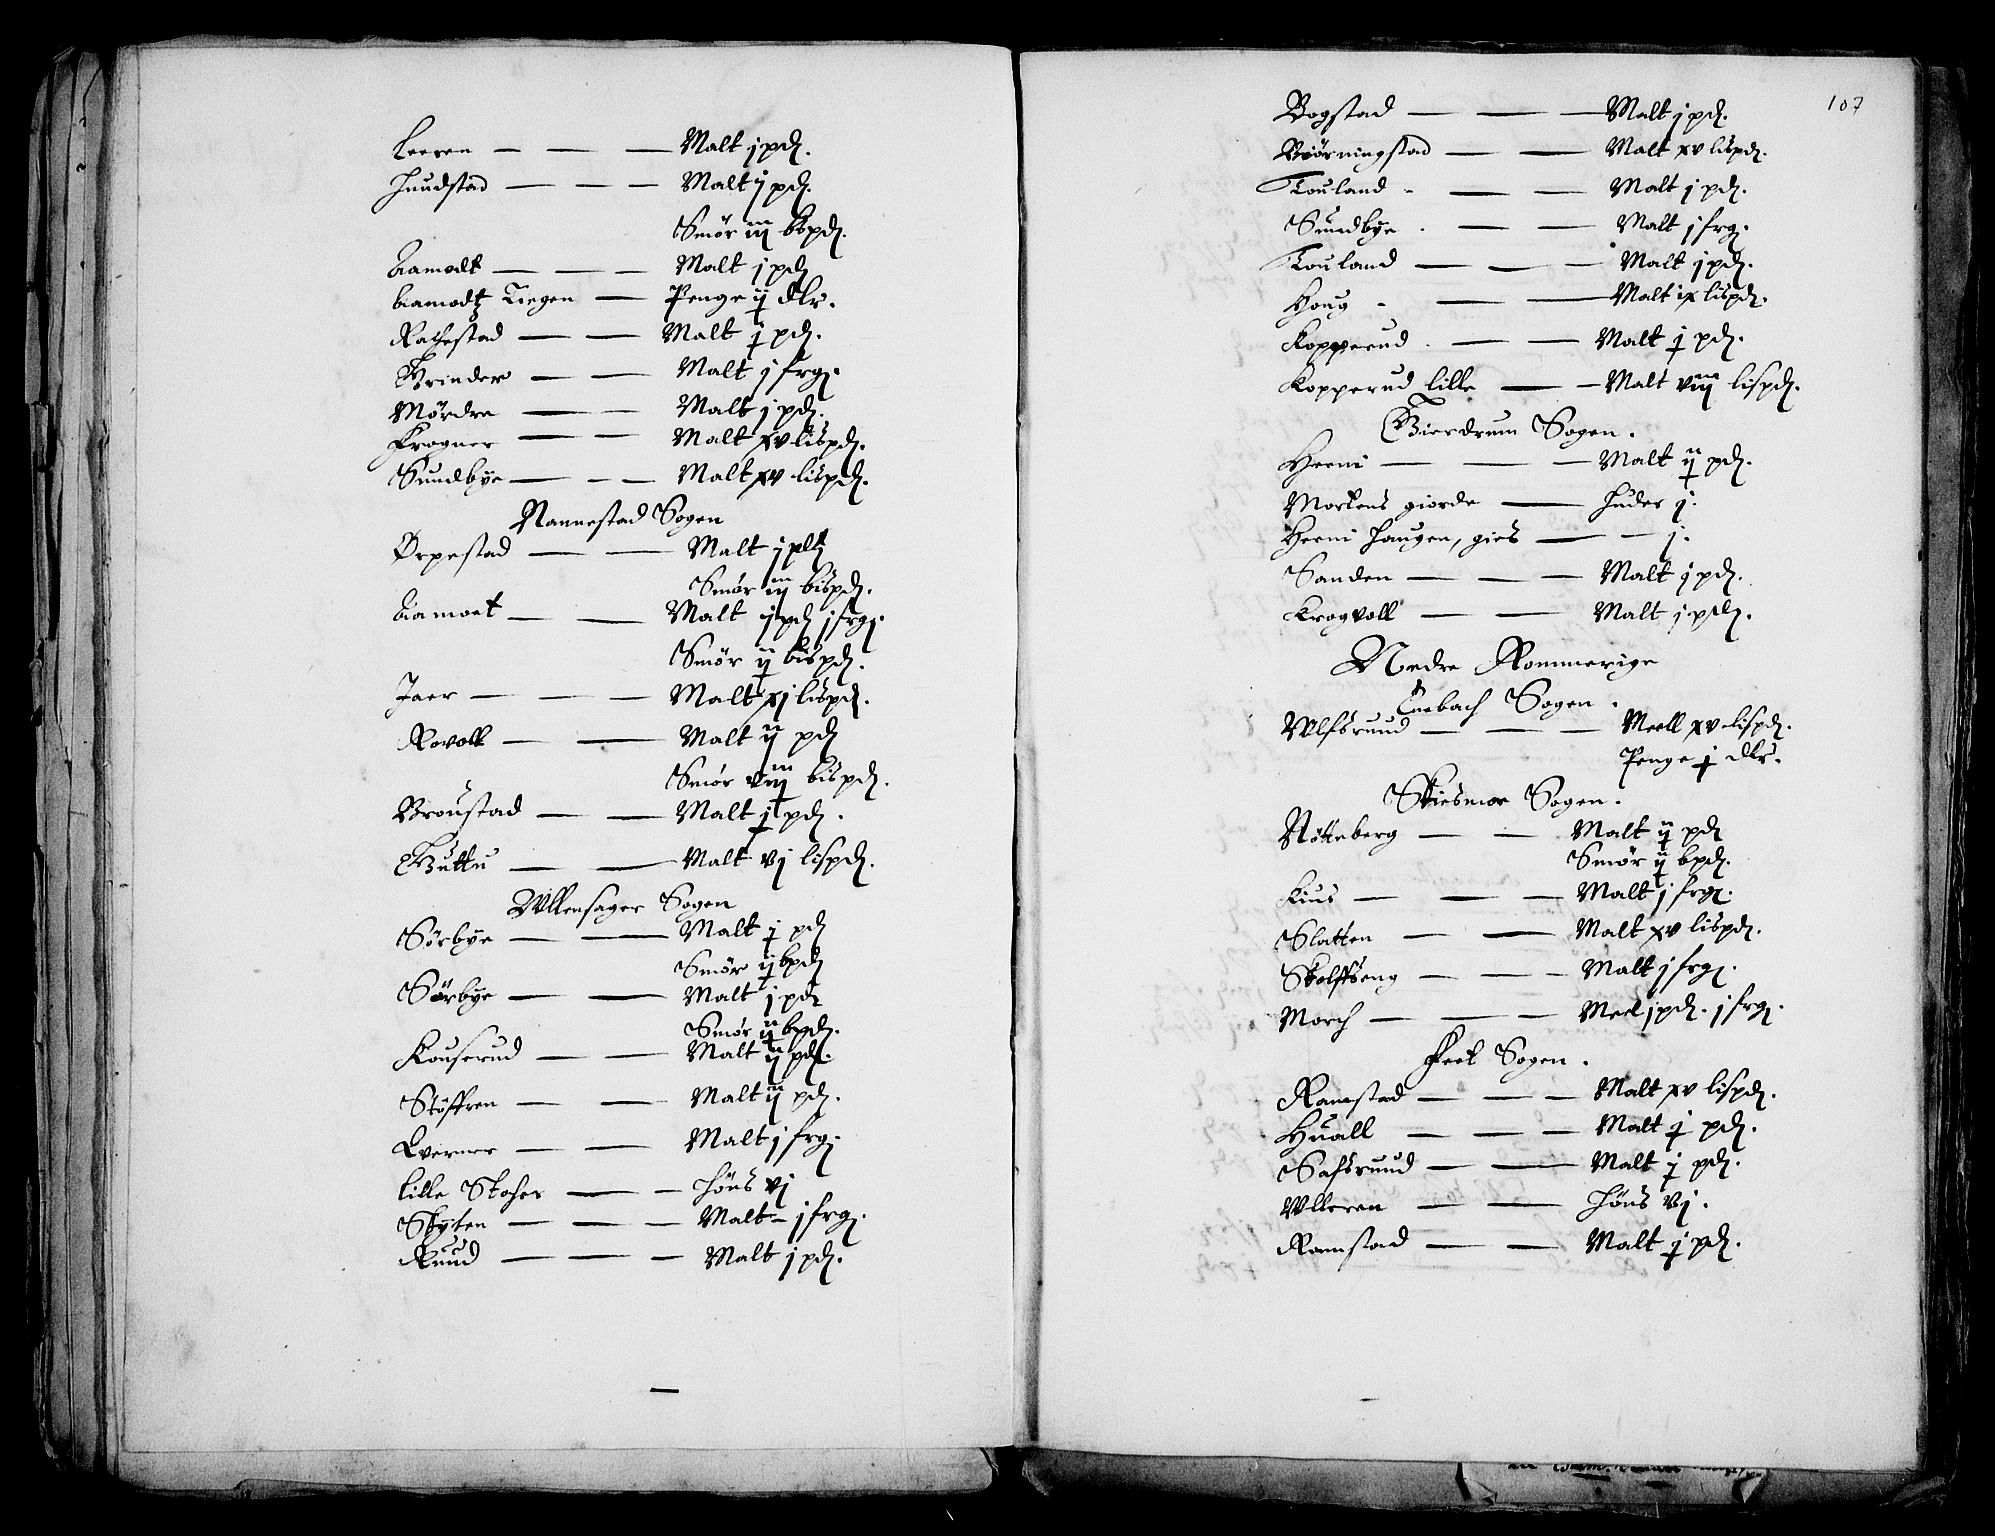 Leeren — — — Malt j pd.
Huudstad — — — Malt ij pd.
Smør iij bspd.
Aamodt — — — Malt j pd
Aamodtz Tiegen — Penge ij dlr.
Rachestad — — Malt j pd.
Brinder — — Malt j frg.
Mørdre — — Malt j pd.
Frogner — — Malt xv lispd.
Sundbye — — — Malt xv lispd.
Nannestad Sogen
Ørpestad — — Malt j pd
Smør iij bispd.
Aamoet — — Malt j pd j frg.
Smør ij bispd.
Jaer — — — Malt xj lispd.
Rovoll — — Malt ij pd
Smør viij bispd.
Broustad — — Malt j pd.
Buttu — — Malt vj lispd.
Ullensager Sogen
Sørbye — — Malt j pd
Smør ij bpd
Sørbye — — Malt j pd
Smør ij bpd.
Kouserud — — Malt ij pd.
Støffren — — Malt ij pd.
Qverner — — Malt j frg.
Lille Skoher — — Høns vj
Skyten — — — Malt — j frg.
Ruud — — — Malt j pd.
107
Bogstad — — — Malt j pd.
Biørningstad — — Malt xv lispd.
Touland — — Malt j pd.
Sundbye — — Malt j frg.
Touland — — — Malt j pd.
Houg — — Malt ix lispd.
Kopperud — — Malt j pd.
Kopperud lille — — Malt viij lispd.
Gierdrum Sogen.
Herni — — — Malt ij pd.
Mortens giorde — Huder j.
Herni Haugen, gies — — j.
Sanden — — — Malt j pd.
Krogvoll — — Malt j pd.
Nedre Rommerige
Enebach Sogen.
Ulfsruud — — — Meell xv lispd.
Penge j dlr.
Skiesmoe Sogen.
Nötteberg — — Malt ij pd
Smør ij bpd.
Kius — — — Malt j frg.
Slatten — — Malt xv lispd.
Skolffseng — — Malt j frg.
Morch — — — Meel j pd. j frg.
Feet Sogen.
Ramstad — — — Malt xv lispd.
Huall — — — Malt j pd.
Safsruud — — Malt j pd.
Ulleren — — Høns vj.
Ramstad — — Malt j pd.